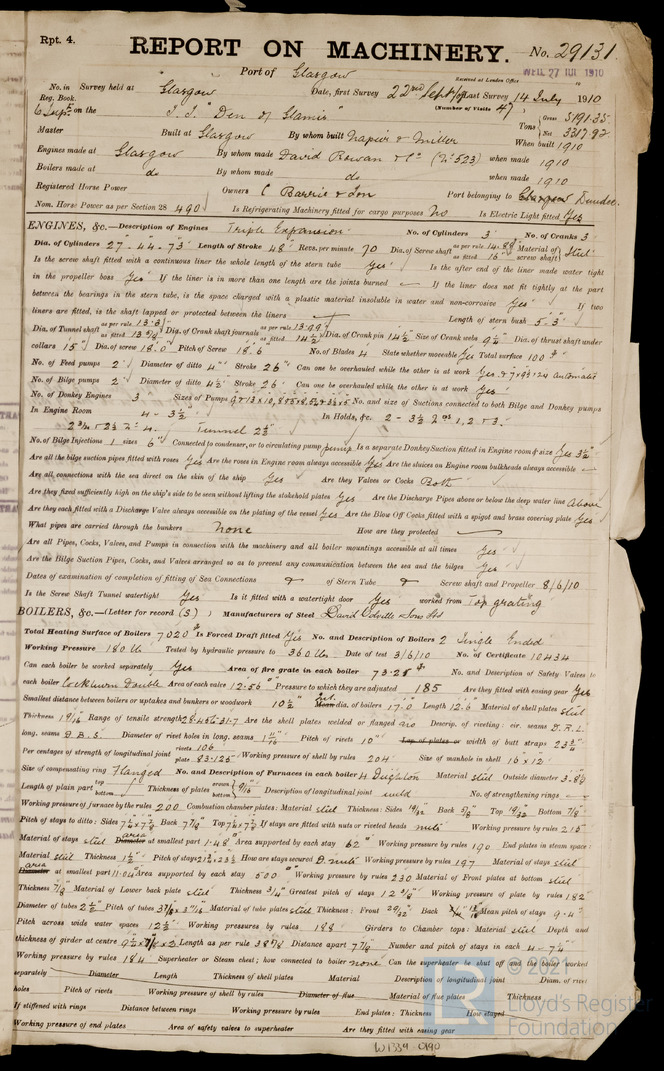 Rpt. 4.
REPORT ON MACHINERY.
No. 29131.
Port of Glasgow
Received at London Office WED. 27 JUL 1910
No. in Survey held at Glasgow Date, first Survey 22nd Sept/09 Last Survey 14 July 1910
Reg. Book. (Number of Visits 47)
on the S.S. "Den of Glamis" Tons Gross 5191.35 Net 3317.92
Master Built at Glasgow By whom built Napier & Miller When built 1910
Engines made at Glasgow By whom made David Rowan & Co (No 523) when made 1910
Boilers made at do By whom made do when made 1910
Registered Horse Power Owners C Barrie & Son Port belonging to Glasgow Dundee
Nom. Horse Power as per Section 28 490 Is Refrigerating Machinery fitted for cargo purposes No Is Electric Light fitted Yes
ENGINES, &c.—Description of Engines Triple Expansion No. of Cylinders 3 No. of Cranks 3
Dia. of Cylinders 27-44-73 Length of Stroke 48 Revs. per minute 70 Dia. of Screw shaft as per rule 14.88 as fitted 16 Material of screw shaft Steel
Is the screw shaft fitted with a continuous liner the whole length of the stern tube Yes Is the after end of the liner made water tight
in the propeller boss Yes If the liner is in more than one length are the joints burned — If the liner does not fit tightly at the part
between the bearings in the stern tube, is the space charged with a plastic material insoluble in water and non-corrosive Yes If two
liners are fitted, is the shaft lapped or protected between the liners — Length of stern bush 5'3"
Dia. of Tunnel shaft as per rule 13.3 as fitted 13 5/8 Dia. of Crank shaft journals as per rule 13.99 as fitted 14 1/2 Dia. of Crank pin 14 1/2 Size of Crank webs 9 1/2 Dia. of thrust shaft under
collars 15" Dia. of screw 18.0 Pitch of Screw 18.6 No. of Blades 4 State whether moveable Yes Total surface 100
No. of Feed pumps 2 Diameter of ditto 4 Stroke 26" Can one be overhauled while the other is at work Yes
No. of Bilge pumps 2 Diameter of ditto 4 1/2 Stroke 26 Can one be overhauled while the other is at work Yes
No. of Donkey Engines 3 Sizes of Pumps No. and size of Suctions connected to both Bilge and Donkey pumps
In Engine Room 4 - 3 1/2 In Holds, &c. 2 - 3 1/2 Nos 1, 2 & 3.
Tunnel 2 1/2
No. of Bilge Injections 1 sizes 6" Connected to condenser, or to circulating pump pump Is a separate Donkey Suction fitted in Engine room & size Yes 3 1/2
Are all the bilge suction pipes fitted with roses Yes Are the roses in Engine room always accessible Yes Are the sluices on Engine room bulkheads always accessible —
Are all connections with the sea direct on the skin of the ship Yes Are they Valves or Cocks Both
Are they fixed sufficiently high on the ship's side to be seen without lifting the stokehold plates Yes Are the Discharge Pipes above or below the deep water line Above
Are they each fitted with a Discharge Valve always accessible on the plating of the vessel Yes Are the Blow Off Cocks fitted with a spigot and brass covering plate Yes
What pipes are carried through the bunkers None How are they protected —
Are all Pipes, Cocks, Valves, and Pumps in connection with the machinery and all boiler mountings accessible at all times Yes
Are the Bilge Suction Pipes, Cocks, and Valves arranged so as to prevent any communication between the sea and the bilges Yes
Dates of examination of completion of fitting of Sea Connections of Stern Tube Screw shaft and Propeller 8/6/10
Is the Screw Shaft Tunnel watertight Yes Is it fitted with a watertight door Yes worked from Top grating
BOILERS, &c.—(Letter for record (S)) Manufacturers of Steel David Colville & Sons Ltd
Total Heating Surface of Boilers 7020 Is Forced Draft fitted Yes No. and Description of Boilers 2 Single Ended
Working Pressure 180 lb Tested by hydraulic pressure to 360 lbs Date of test 3/6/10 No. of Certificate 10434
Can each boiler be worked separately Yes Area of fire grate in each boiler 73.25 No. and Description of Safety Valves to
each boiler Cockburn Double Area of each valve 12.56 Pressure to which they are adjusted 185 Are they fitted with easing gear Yes
Smallest distance between boilers or uptakes and bunkers or woodwork 10 1/2 dia. of boilers 17.0 Length 12.6 Material of shell plates Steel
Thickness 1 9/16 Range of tensile strength 28.45 to 31.7 Are the shell plates welded or flanged No Descrip. of riveting: cir. seams D.R.L.
long. seams D.B.S. Diameter of rivet holes in long. seams 1 11/16 Pitch of rivets 10" Lap of plates or width of butt straps 23 3/4
Per centages of strength of longitudinal joint rivets 106 plate 83.125 Working pressure of shell by rules 204 Size of manhole in shell 16" x 12"
Size of compensating ring Flanged No. and Description of Furnaces in each boiler 4 Deighton Material steel Outside diameter 3.8
Length of plain part top bottom Thickness of plates crown bottom 9/16 Description of longitudinal joint weld No. of strengthening rings —
Working pressure of furnace by the rules 200 Combustion chamber plates: Material steel Thickness: Sides 19/32 Back 5/8 Top 19/32 Bottom 7/8
Pitch of stays to ditto: Sides 7 1/2 x 7 7/8 Back 7 7/8 Top 7 1/2 x 7 7/8 If stays are fitted with nuts or riveted heads nuts Working pressure by rules 215
Material of stays steel Diameter area at smallest part 1.48 Area supported by each stay 62 Working pressure by rules 190 End plates in steam space:
Material steel Thickness 1 1/2 Pitch of stays How are stays secured D. nuts Working pressure by rules 197 Material of stays steel
Diameter area at smallest part 11.04 Area supported by each stay 500 Working pressure by rules 230 Material of Front plates at bottom steel
Thickness 7/8 Material of Lower back plate steel Thickness 3/4 Greatest pitch of stays Working pressure of plate by rules 182
Diameter of tubes 2 1/2 Pitch of tubes Material of tube plates steel Thickness: Front 29/32 Back Mean pitch of stays 9.4
Pitch across wide water spaces 12 1/2 Working pressures by rules 188 Girders to Chamber tops: Material steel Depth and
thickness of girder at centre Length as per rule 38 7/8 Distance apart 7 7/8 Number and pitch of stays in each 4 - 7 1/2
Working pressure by rules 184 Superheater or Steam chest; how connected to boiler none Can the superheater be shut off and the boiler worked
separately Diameter Length Thickness of shell plates Material Description of longitudinal joint Diam. of rivet
holes Pitch of rivets Working pressure of shell by rules Diameter of flue Material of flue plates Thickness
If stiffened with rings Distance between rings Working pressure by rules End plates: Thickness How stayed
Working pressure of end plates Area of safety valves to superheater Are they fitted with easing gear
© 2021
Lloyd's Register
Foundation
W1339-0190